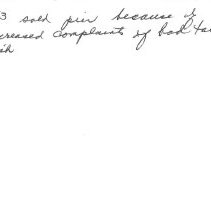 3 sold pier because of
creased complaints of bad ta
sh